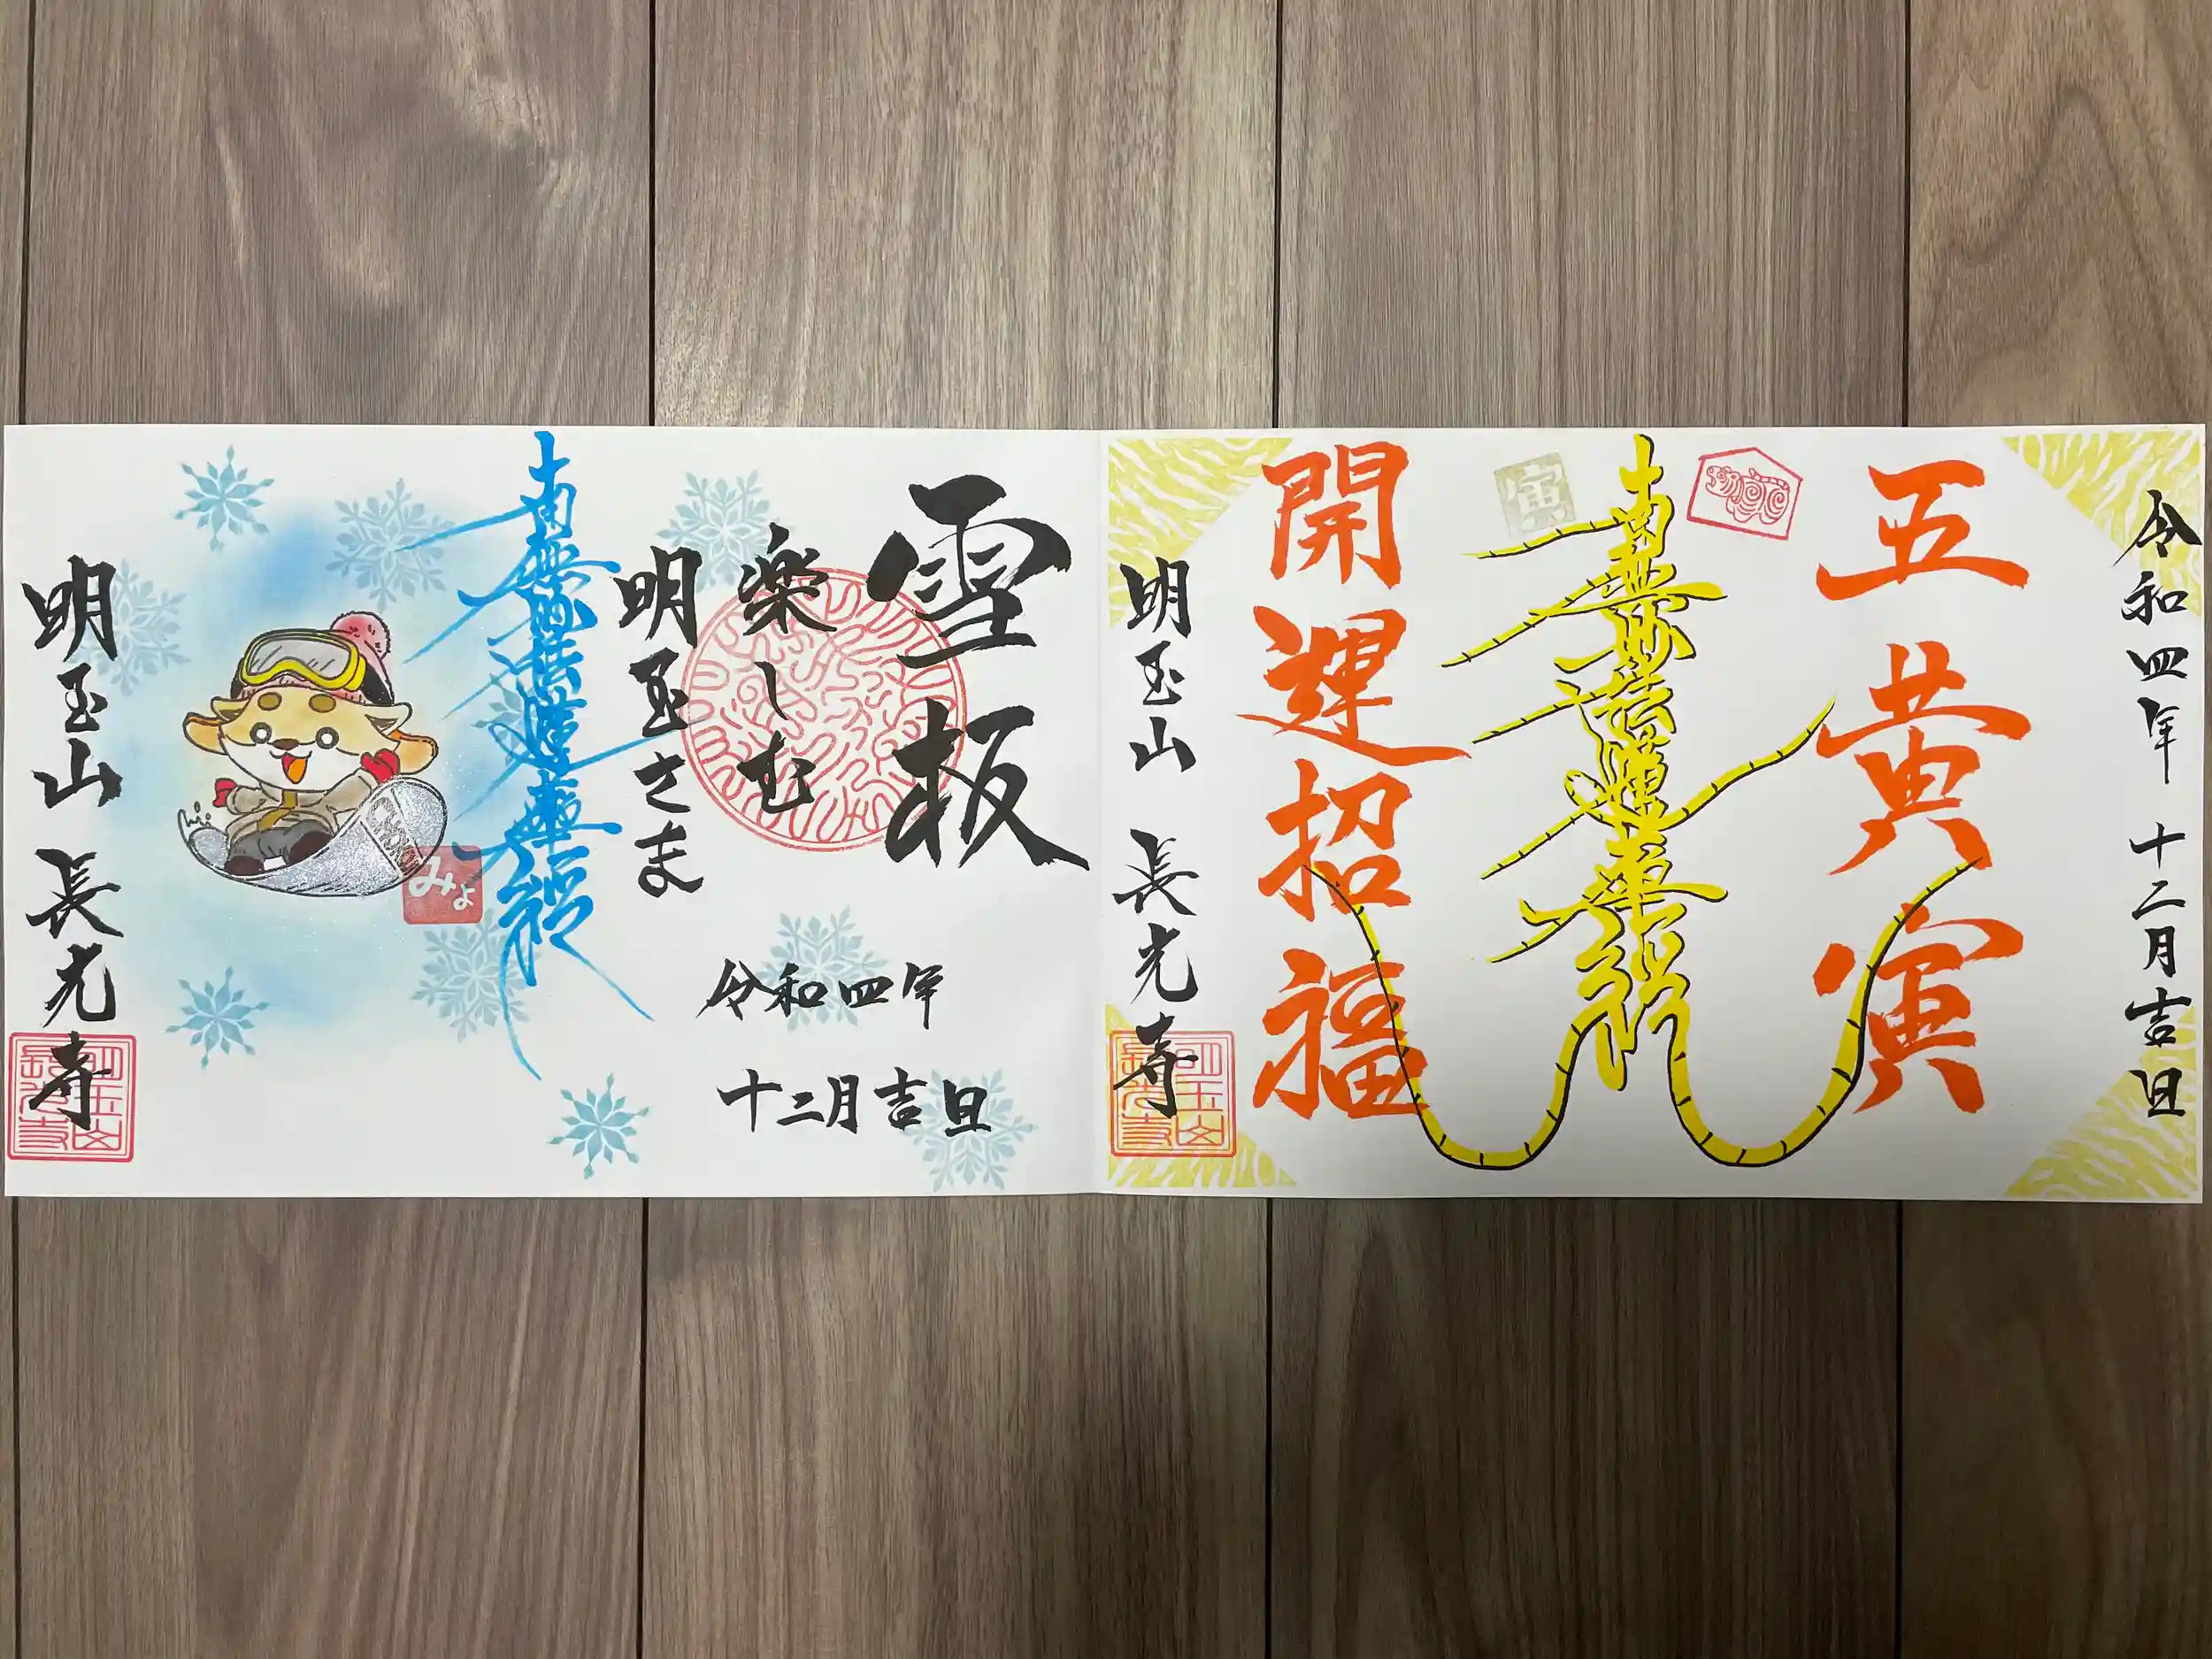 令和四年 十二月吉日
五黄寅
南無妙法蓮華経
寅
開運招福
明玉山 長光寺
雪板
楽しむ
明玉さま
令和四年
十二月吉日
南無妙法蓮華経
みょ
明玉山 長光寺